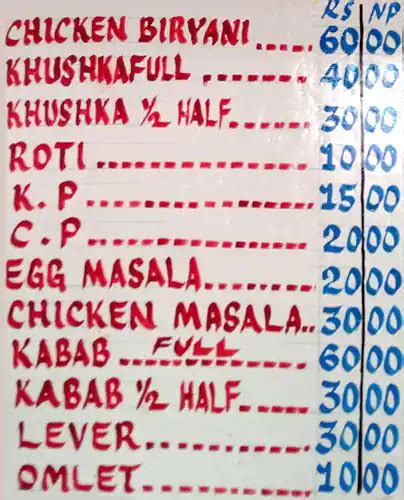 RS NP
CHICKEN BIRYANI ..... 60 00
KHUSHKAFULL ....... 40 00
KHUSHKA ½ HALF....... 30 00
ROTI .............. 10 00
K.P .............. 15 00
C.P .............. 20 00
EGG MASALA........ 20 00
CHICKEN MASALA.. 30 00
KABAB FULL ........ 60 00
KABAB ½ HALF...... 30 00
LEVER............ 30 00
OMLET............ 10 00